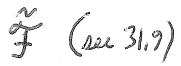 $\tilde{\tilde{\mathcal{F}}}$ (sec 31,9)